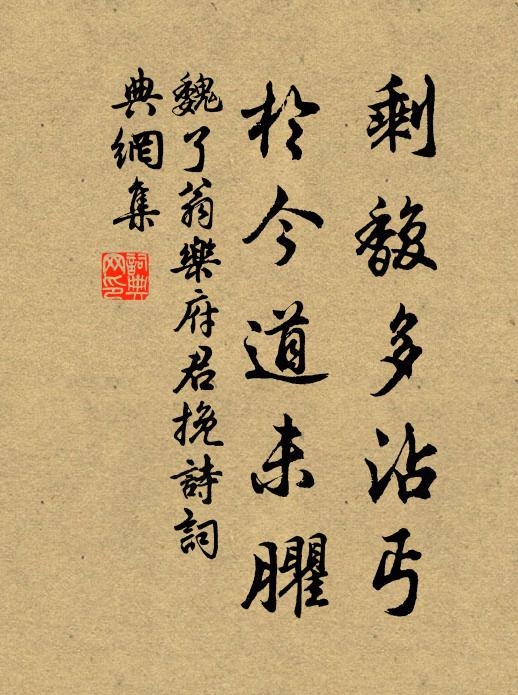 剩馥多沾丐
於今道未臞
魏了翁樂府君挽詩詞
典網集
詞典
网印